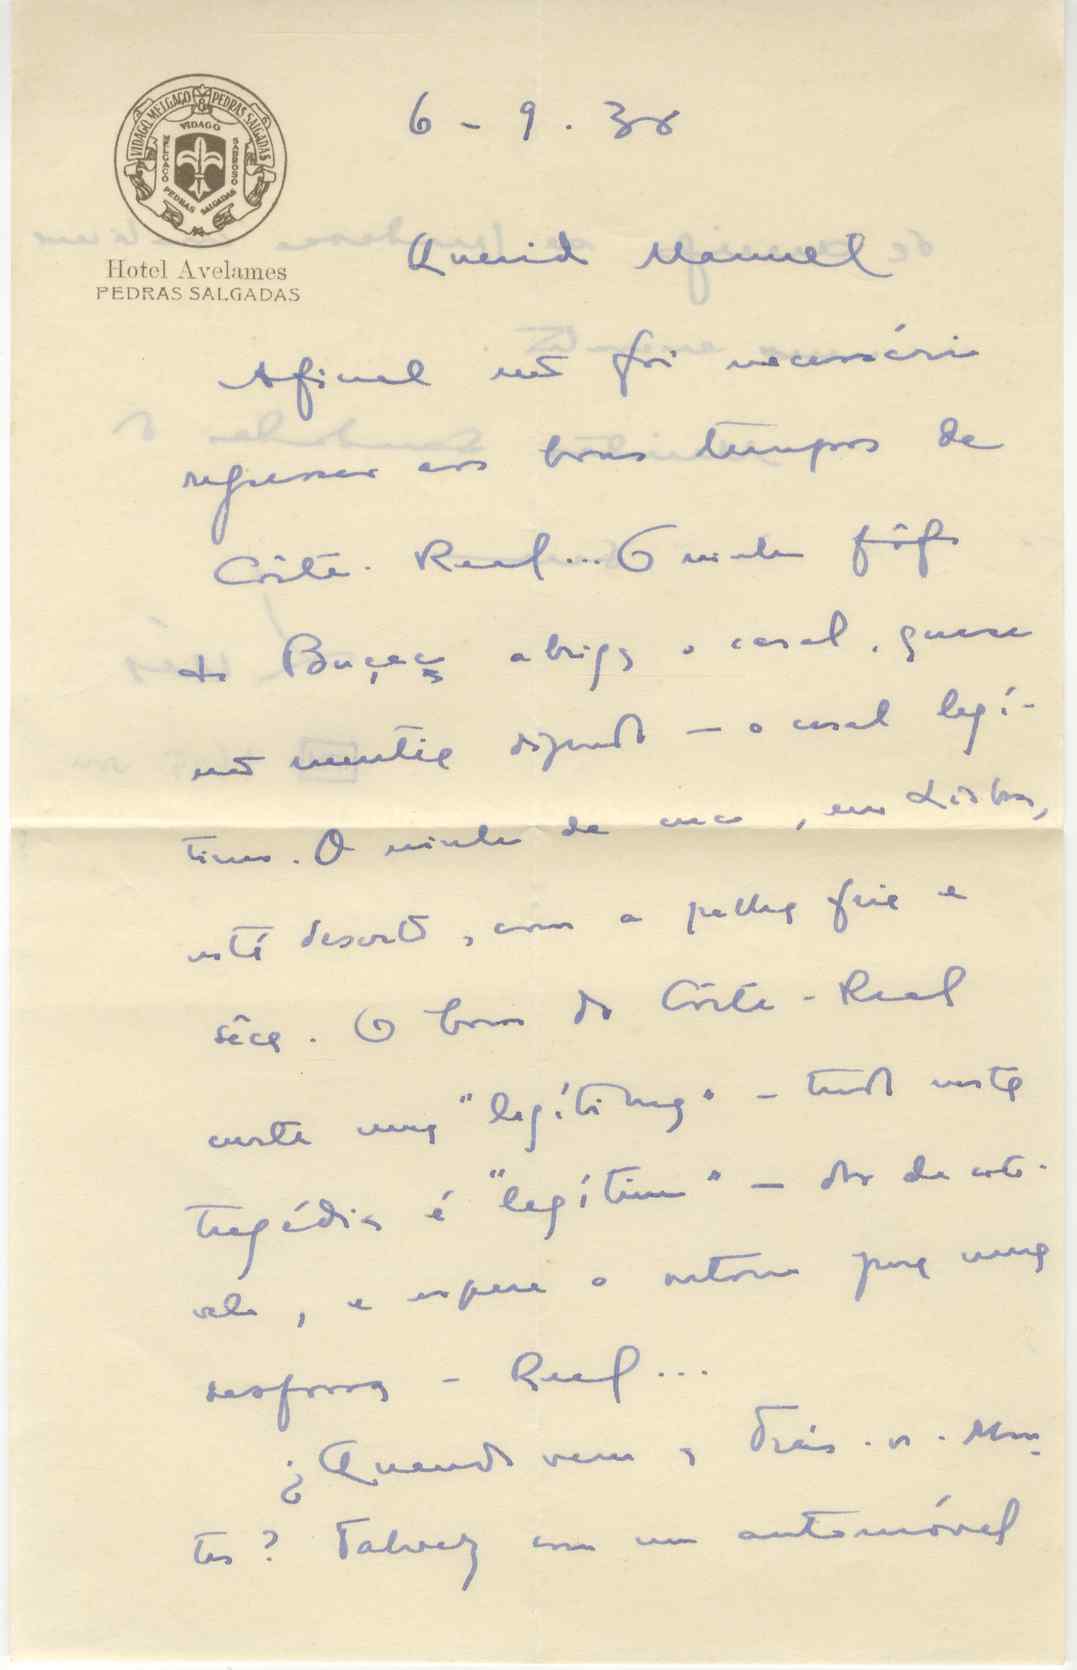 VIDAGO MELGAÇO & PEDRAS SALGADAS
VIDAGO
MELGAÇO
SABROSO
PEDRAS SALGADAS
Hotel Avelames
PEDRAS SALGADAS
6 - 9 . 38
Querido Manuel
Afinal não foi necessário
regressar aos bons tempos de
Côrte-Real... O ninho fôfo
do Buçaco abriga o casal, quase
não mentia dizendo — o casal legí-
timo. O ninho de cuco, em Lisboa,
está deserto, com a palha fria e
sêca. O bom do Côrte-Real
curte uma "legítima" - tudo nesta
tragédia é "legítimo" — dor de coto-
velo, e espera o retorno para uma
desforra - Real...
¿Quando vem a Trás-os-Mon-
tes? Talvez com um automóvel